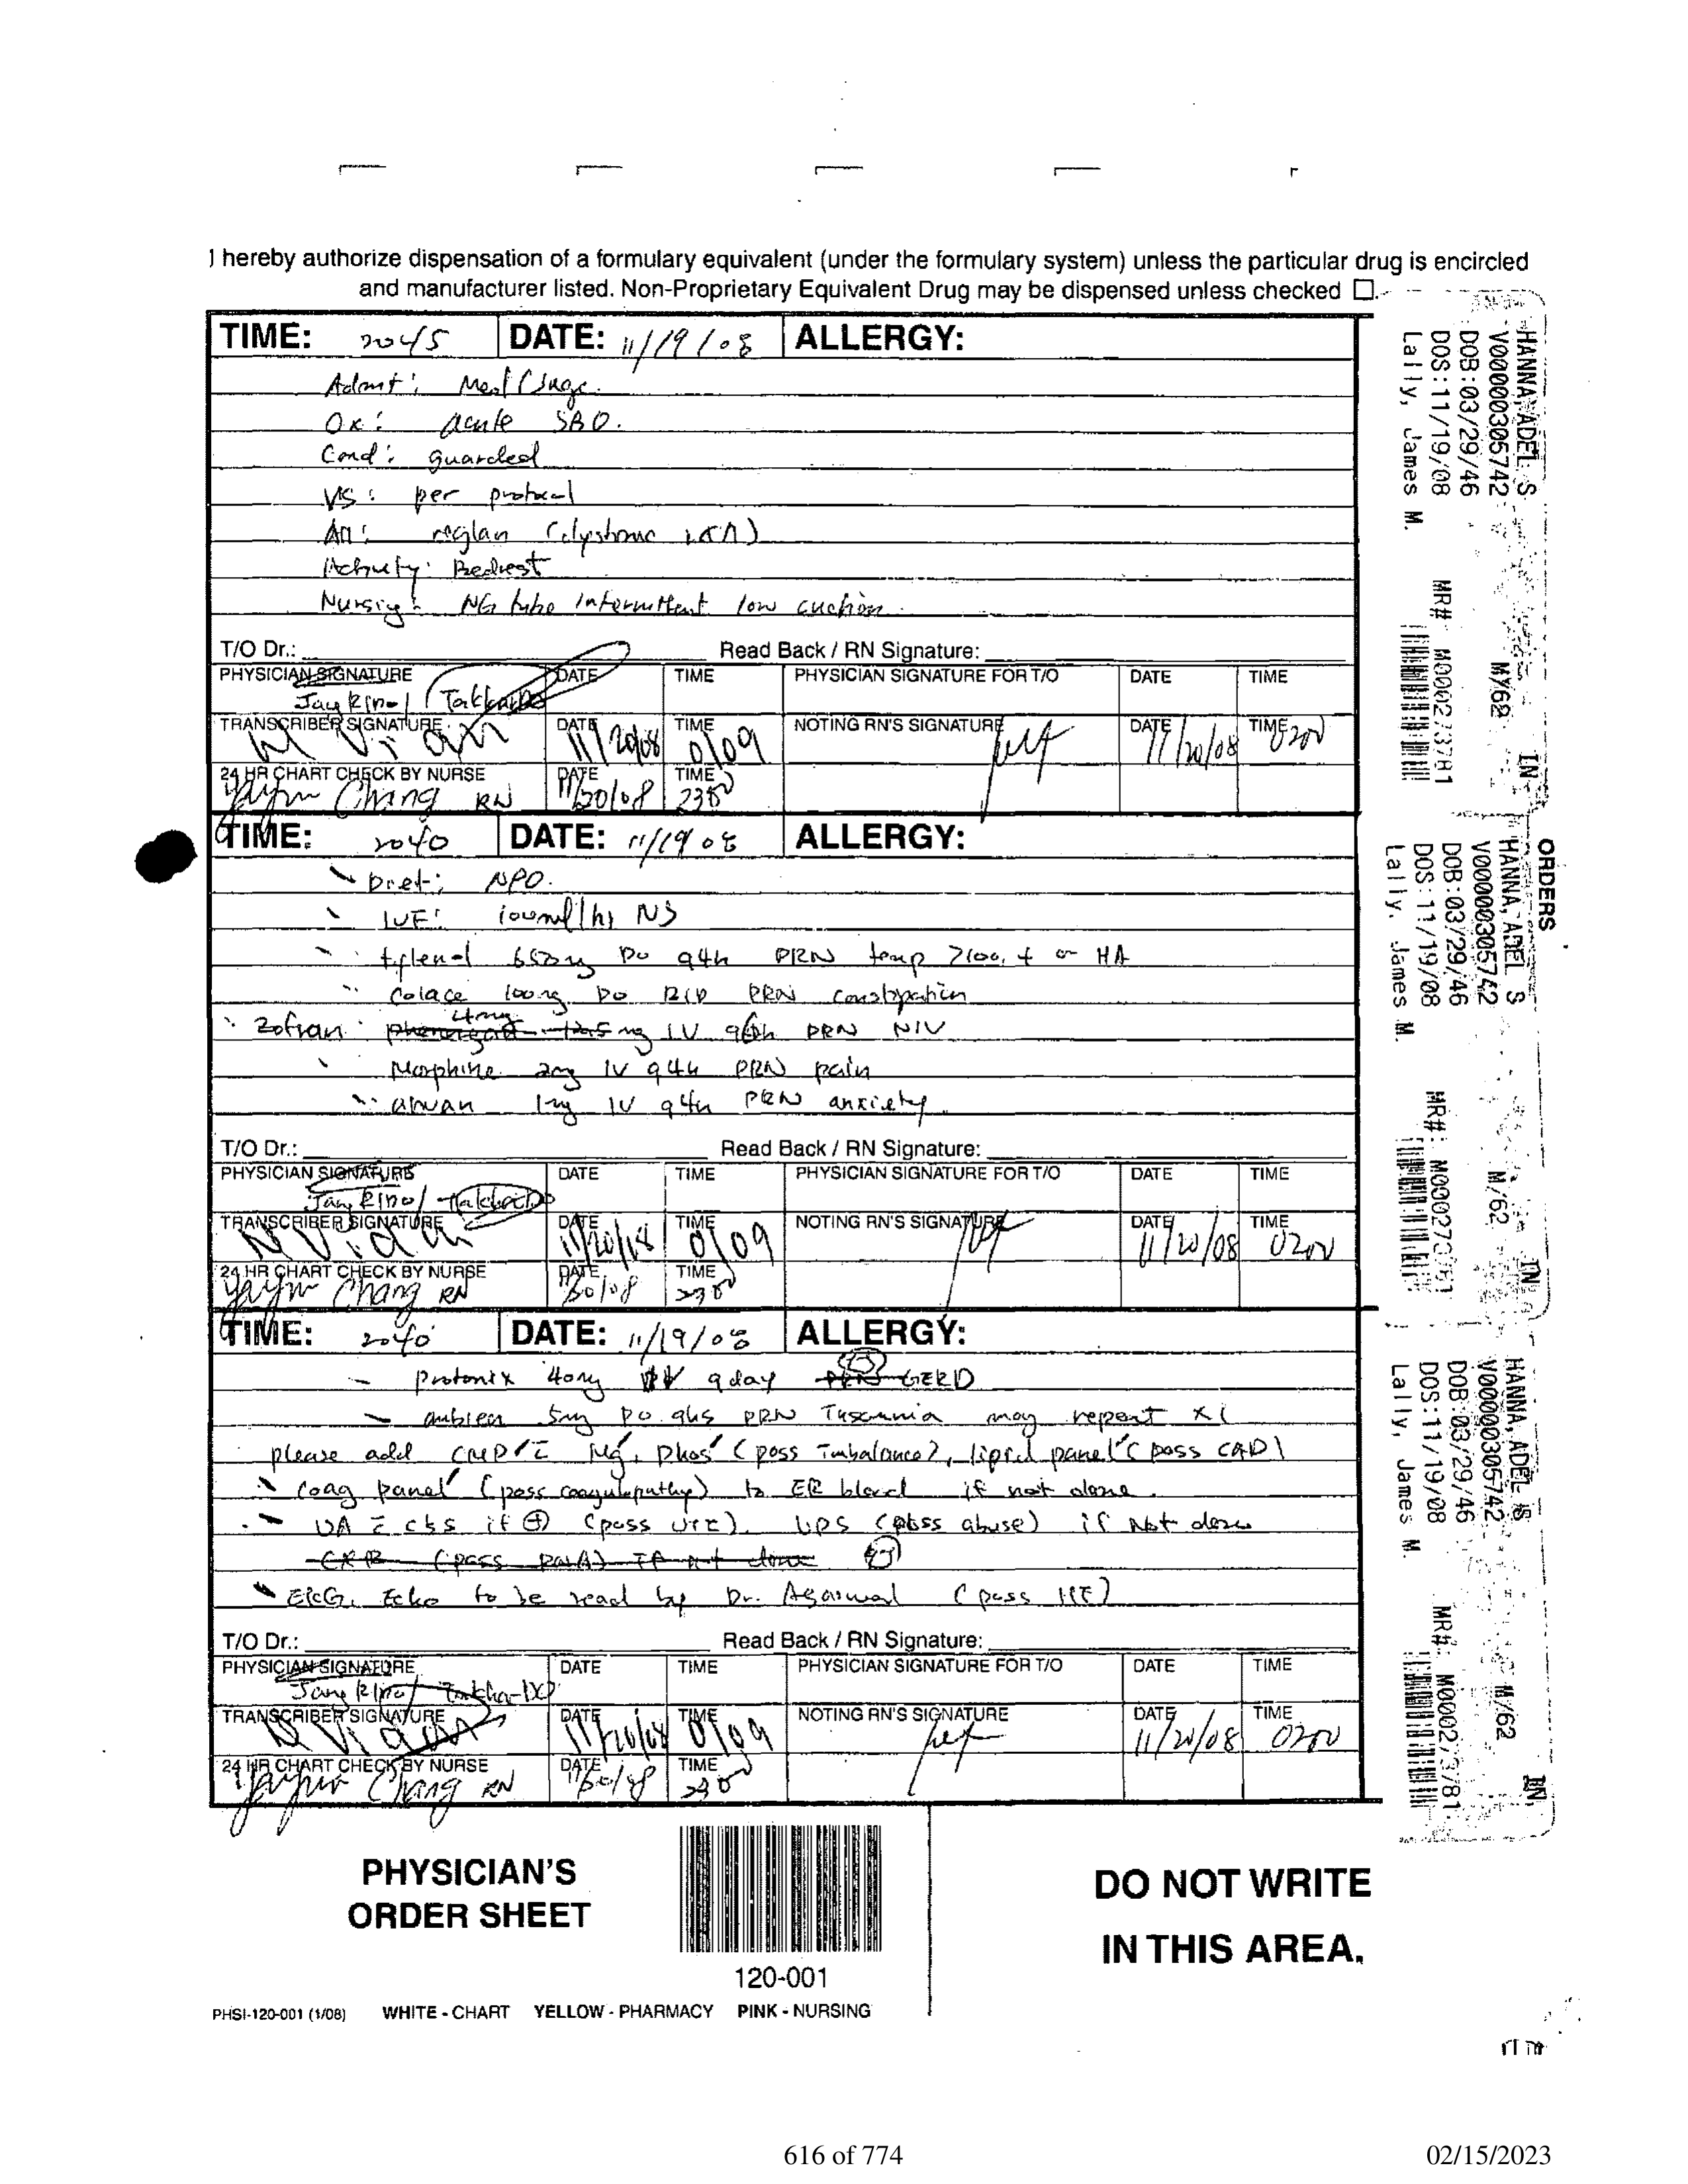 I hereby authorize dispensation of a formulary equivalent (under the formulary system) unless the particular drug is encircled
and manufacturer listed. Non-Proprietary Equivalent Drug may be dispensed unless checked ☐.
TIME: 2045 DATE: 11/19/08 ALLERGY:
Admit: Med/Surge.
Dx: acute SBO.
Cond: guarded
VS: per protocol
All: reglan
Activity: Bedrest
Nursing: NG tube intermittent low suction
T/O Dr.: Read Back / RN Signature:
PHYSICIAN SIGNATURE DATE TIME PHYSICIAN SIGNATURE FOR T/O DATE TIME
TRANSCRIBER SIGNATURE DATE 11/20/08 TIME 0109 NOTING RN'S SIGNATURE DATE 11/20/08 TIME 0200
24 HR CHART CHECK BY NURSE DATE TIME
Chang RN 11/20/08
TIME: 2040 DATE: 11/19/08 ALLERGY:
Diet: NPO.
IVF: 100ml/hr NS
tylenol 650mg PO q4h PRN temp >100.4 or HA
Colace 100mg PO BID PRN constipation
Zofran 4mg IV PRN N/V
Morphine 2mg IV q4h PRN pain
ativan 1mg IV PRN anxiety
T/O Dr.: Read Back / RN Signature:
PHYSICIAN SIGNATURE DATE TIME PHYSICIAN SIGNATURE FOR T/O DATE TIME
TRANSCRIBER SIGNATURE DATE TIME 0109 NOTING RN'S SIGNATURE DATE 11/20/08 TIME 0200
24 HR CHART CHECK BY NURSE DATE TIME
Chang RN
TIME: 2040 DATE: 11/19/08 ALLERGY:
Protonix 40mg qday GERD
ambien 5mg PO qhs PRN may repeat x1
please add Mg, Phos (poss Imbalance), lipid panel (poss CAD)
Coag panel (poss coagulopathy) to ER blood if not done
UA c̄ c&s if ⊕ UDS (poss abuse) if not done
EKG, Echo to be read by Dr. Agarwal
T/O Dr.: Read Back / RN Signature:
PHYSICIAN SIGNATURE DATE TIME PHYSICIAN SIGNATURE FOR T/O DATE TIME
TRANSCRIBER SIGNATURE DATE 11/20/08 TIME 0109 NOTING RN'S SIGNATURE DATE 11/20/08 TIME 0200
24 HR CHART CHECK BY NURSE DATE TIME
Chang RN
HANNA, ADEL S IN
V00000305742 M/62
DOB:03/29/46
DOS:11/19/08 MR# M000273781
Lally, James M.
ORDERS
HANNA, ADEL S IN
V00000305742 M/62
DOB:03/29/46
DOS:11/19/08 MR#:
Lally, James M.
HANNA, ADEL S IN
V00000305742 M/62
DOB:03/29/46
DOS:11/19/08 MR#: M000273781
Lally, James M.
PHYSICIAN'S
ORDER SHEET
120-001
DO NOT WRITE
IN THIS AREA.
PHSI-120-001 (1/08) WHITE - CHART YELLOW - PHARMACY PINK - NURSING
616 of 774 02/15/2023